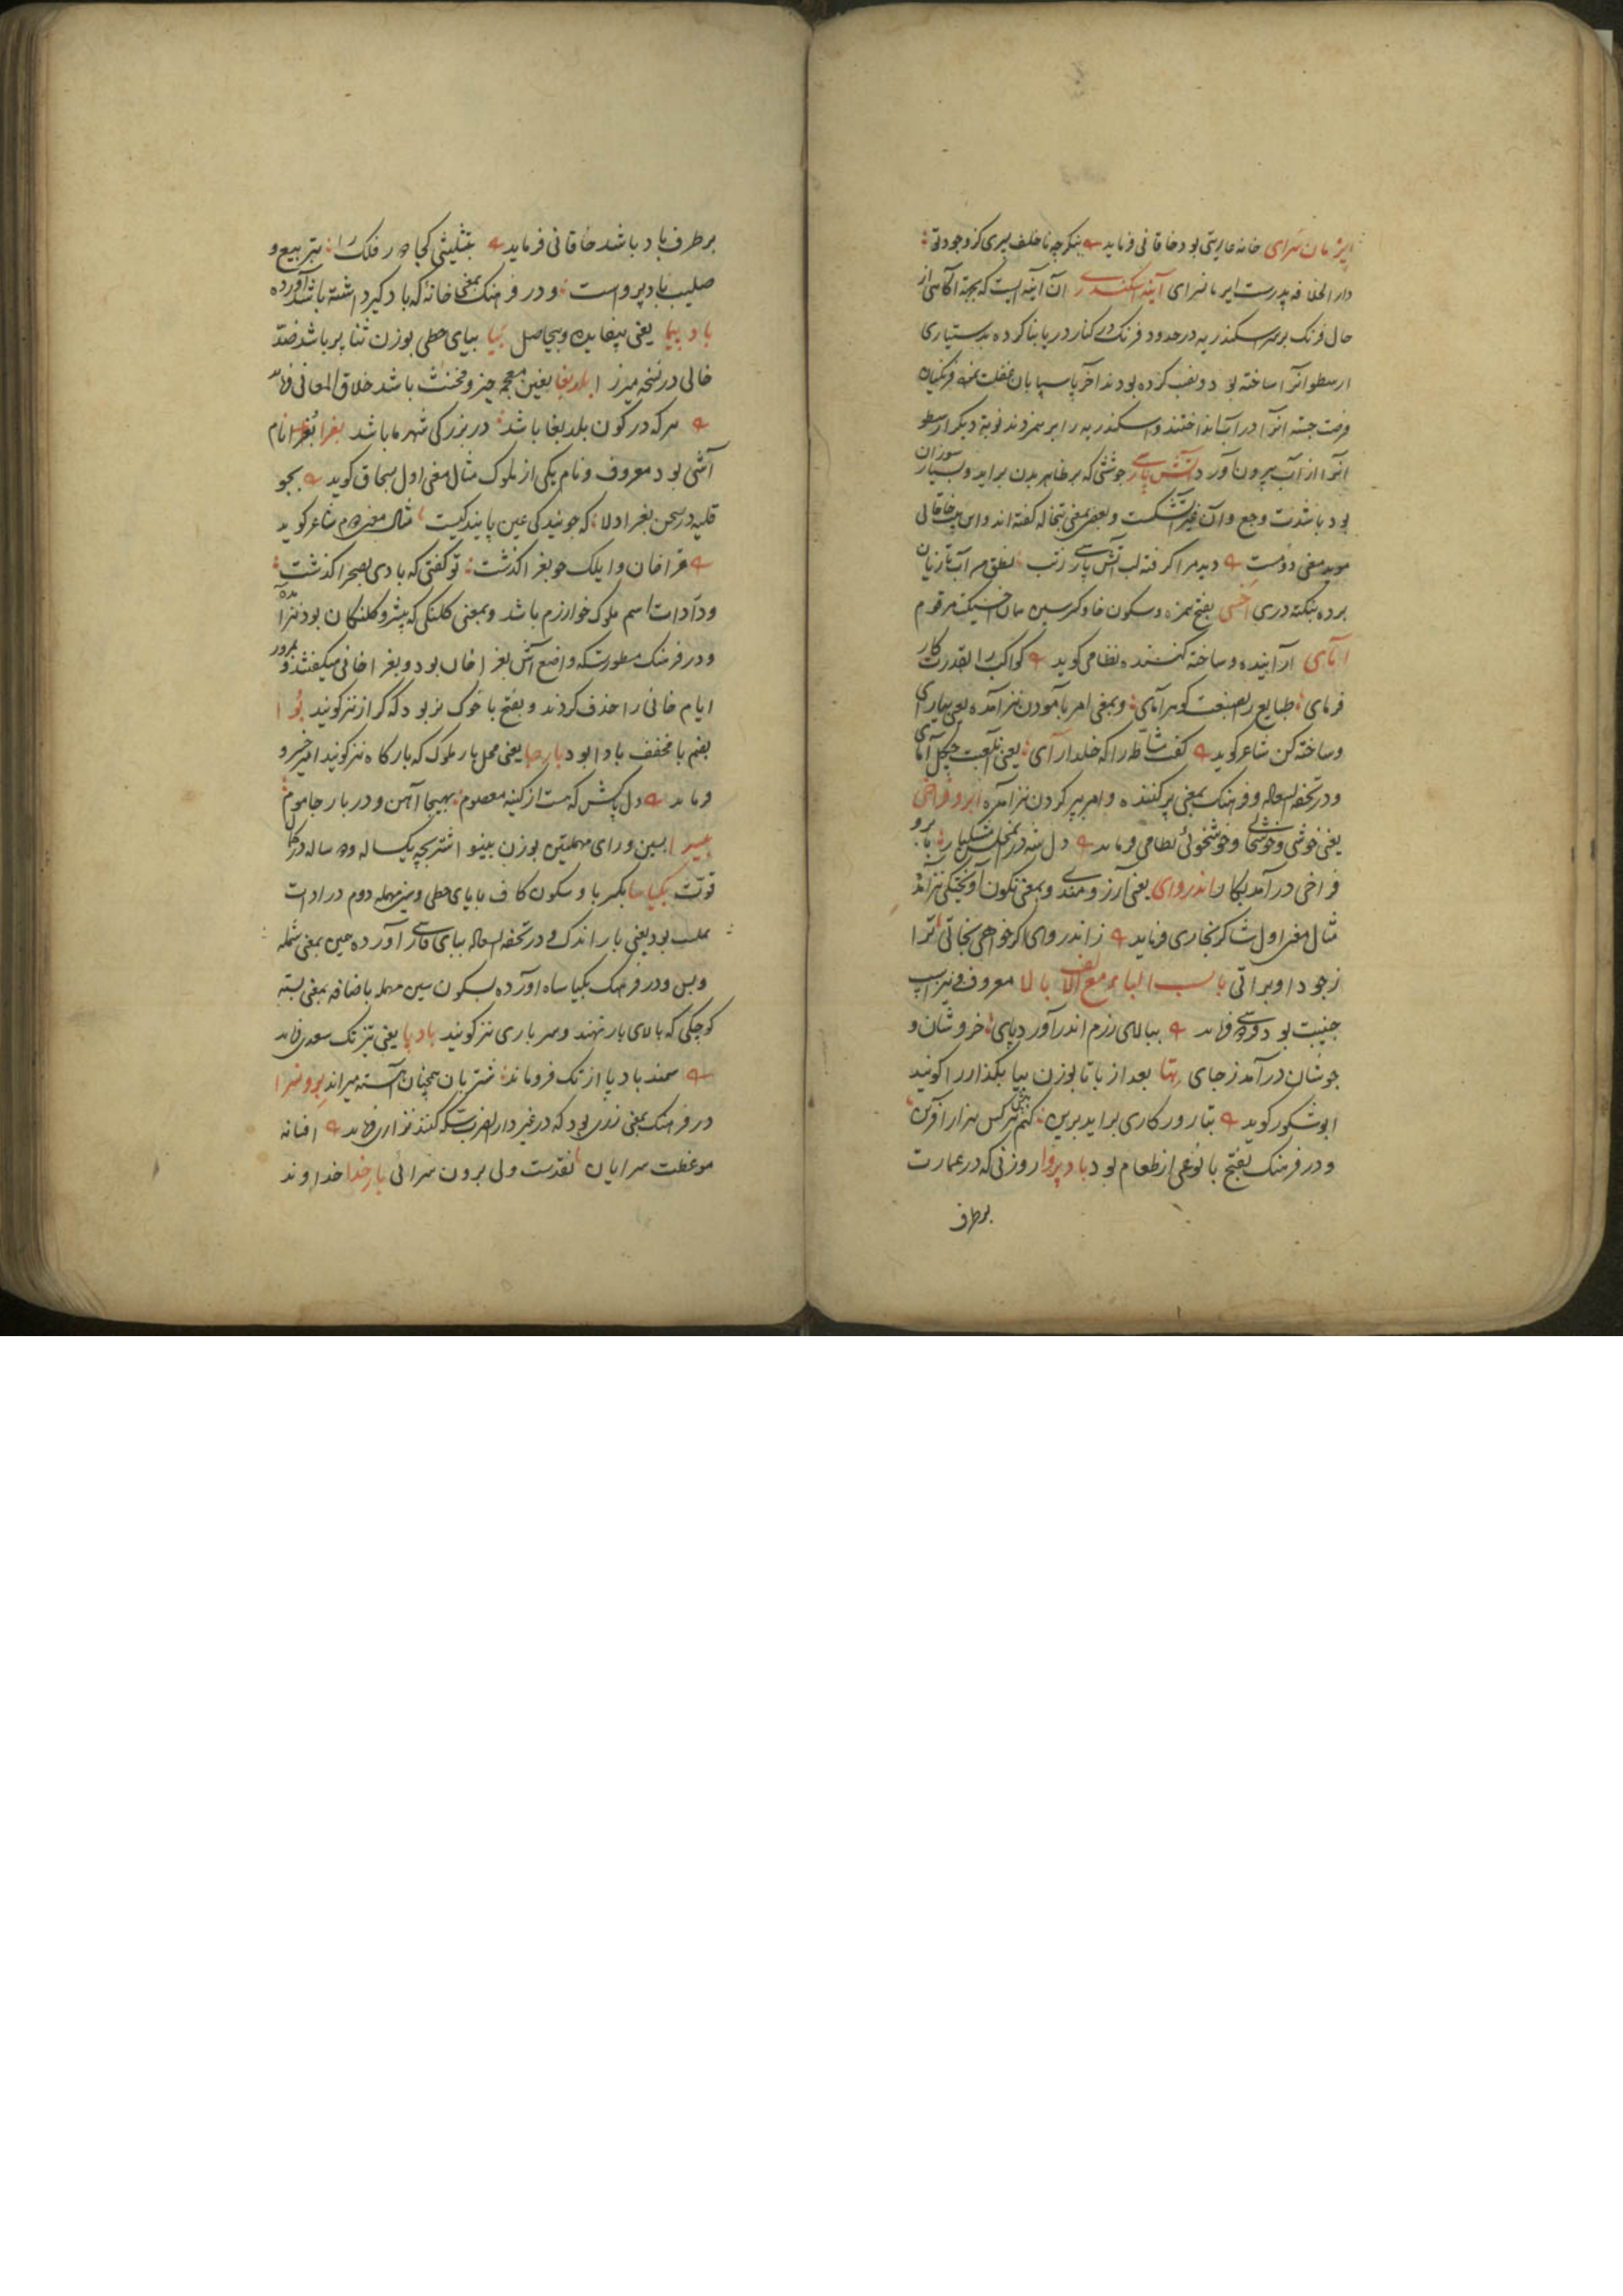 ایرمان سرای خانه عاریتی بود خاقانی فرماید بنگر چه ناخلف پسری کز وجود تو
دار الخلافه پدرست ایرمانسرای آینه اسکندری آن آینه ایست که بجهة آگاهی از
حال فرنک بر سر اسکندریه در حدود فرنک در کنار دریا بنا کرده بدستیاری
ارسطو انرا ساخته بود و نصب کرده بودند آخر پاسبانان غفلت نموده فرنکیان
فرصت جسته انرا در آب انداختند و اسکندریه را بر هم زدند نوبة دیکر ارسطو
انرا از آب بیرون آورد آتش پارسی جوششی که بر ظاهر بدن براید و بسیار سوزان
بود باشدت وجع و آن غیر آتشکست و بعضی بمعنی تبخاله کفته اند و این بیت خاقانی
موید معنی دومست دید مرا کرفته لب آتش پارسی ز تب نطق من آب تازیان
برده بنکته دری اخسی بفتح همزه و سکون خا و کسر سین همان اخسیکت مرقوم
آمای آراینده و ساخته کننده نظامی کوید کواکب را بقدرت کار
فرمای طبایع را بصنعت کوهر آمای و بمعنی امر بآمودن نیز آمده یعنی بیارای
و ساخته کن شاعر کوید کفت مشاطه را که خلد آرای یعنی لعبت چکل آمای
و در تحفه السعاده و فرهنک بمعنی پر کننده و امر بپر کردن نیز آمده ابرو فراخی
یعنی خوشی و خوشحالی و خوشخوئی نظامی فرماید دل شه در ان مجلس تنکبار بابرو
فراخی در آمد بکار اندروای یعنی آرزومندی و بمعنی نکون آویختکی نیز آمده
مثال معنی اول شاکر بخاری فرماید ز اندروای اکر خواهی نجاتی ترا
ز جود او براتی باب الباء مع الالف بالا معروف و نیز اسپ
جنیبت بود فردوسی فرماید ببالای رزم اندر آورد پای خروشان و
جوشان در آمد ز جای بتا بعد از با تا بوزن بیا بکذار را کویند
ابوشکور کوید بتا روزکاری براید برین کنم پیش هر کس هزار آفرین
و در فرهنک بفتح با نوعی از طعام بود بادپروا روزنی که در عمارت
بر طرف
بر طرف باد باشد خاقانی فرماید بتثلیثی کجا در فلک را بتربیع و
صلیب باد پرواست و در فرهنک بمعنی خانهٔ که باد کیر داشته باشد آورده
باد پیما یعنی بیفایده و بیحاصل بیا ببای حطی بوزن ثنا پر باشد ضد
خالی در نسخه میرزا بلدبغا بغین معجمه حیز و مخنث باشد خلاق المعانی فرماید
هر که در کون بلدبغا باشد در بزرکی شهر ما باشد بغرا نام
آشی بود معروف و نام یکی از ملوک مثال معنی اول بسحاق کوید بجو
قلیه در صحن بغرا دلا که جویندکی عین یابندکیست مثال معنی دوم شاعر کوید
قراخان و ایلک چو بغرا کذشت تو کفتی که بادی بصحرا کذشت
و در ادات اسم ملوک خوارزم باشد و بمعنی کلنکی که پیشرو کلنکان بود نیز آمده
و در فرهنک مسطورست که واضع آش بغرا خان بود و بغرا خانی میکفتند و بمرور
ایام خانی را حذف کردند و بفتح با خوک نر بود که کراز نیز کویند بوا
بضم با مخفف بادا بود بارجا یعنی محل بار ملوک که بارکاه نیز کویند امیر خسرو
فرماید دل پاکش که هست از کینه معصوم بهیجا آهن و در بار جا موم
بیسرا بسین و رای مهملتین بوزن بینوا اشتر بچه یکساله و دو ساله در کمال
قوت بکیاسا بکسر با و سکون کاف با یای حطی و سین مهمله دوم در ادات
بملت بود یعنی بار اندک و در تحفه السعاده ببای فارسی آورده همین بمعنی شمله
و بس و در فرهنک بکیاساه آورده بسکون سین مهمله باضافه بمعنی بسته
کوچکی که بالای بار نهند و سر باری نیز کویند باد پا یعنی تیز تک سعدی فرماید
سمند باد پا از تک فرو ماند شتربان همچنان آهسته میراند برونسرا
در فرهنک بمعنی زری بود که در غیر دار الضرب سکه کنند نزاری فرماید افسانه
موعظت سرایان نقدست ولی برون سرائی بارخدا خداوند